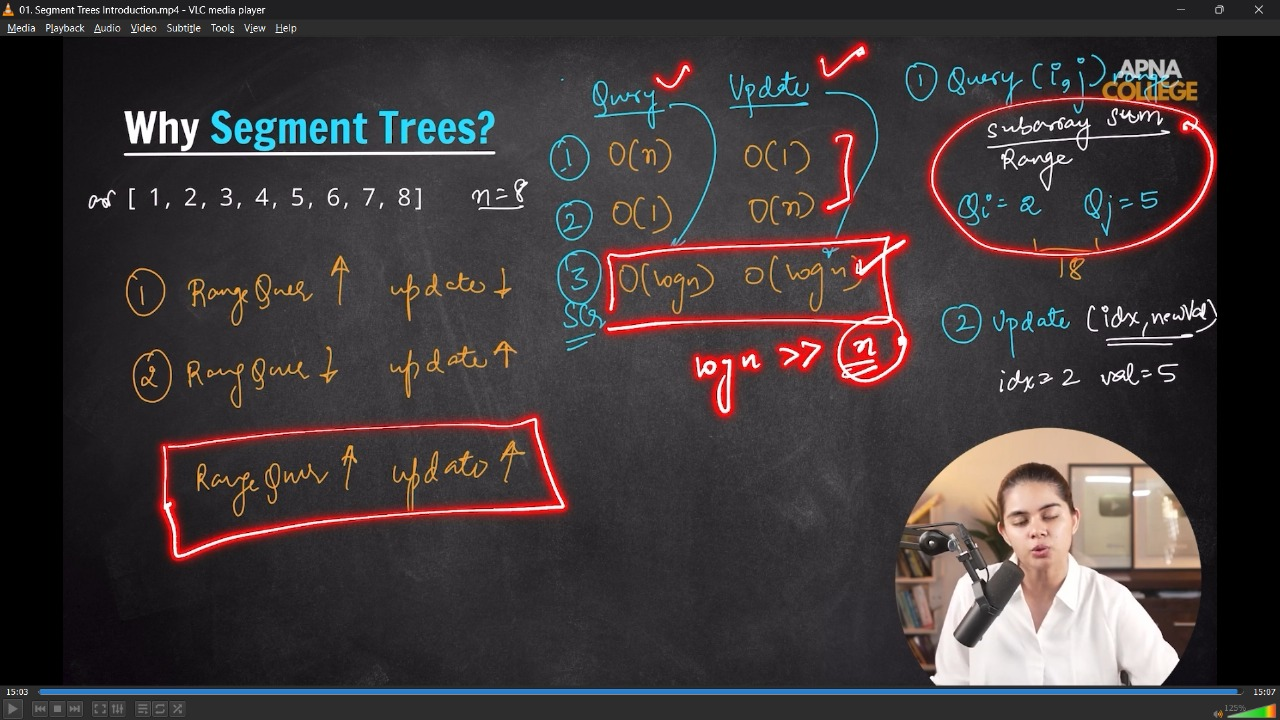 01. Segment Trees Introduction.mp4 - VLC media player
Media Playback Audio Video Subtitle Tools View Help
APNA
COLLEGE
Why Segment Trees?
arr [ 1, 2, 3, 4, 5, 6, 7, 8] n=8
① Range Quer ↑ update ↓
② Rang Quer ↓ update ↑
Range Quer ↑ update ↑
Query Update
① O(n) O(1)
② O(1) O(n)
③ O(logn) O(logn)
logn >> n
① Query (i,j) range
subarray sum
Range
Qi = 2 Qj = 5
18
② Update (idx, newVal)
idx = 2 val = 5
15:03
15:07
125%